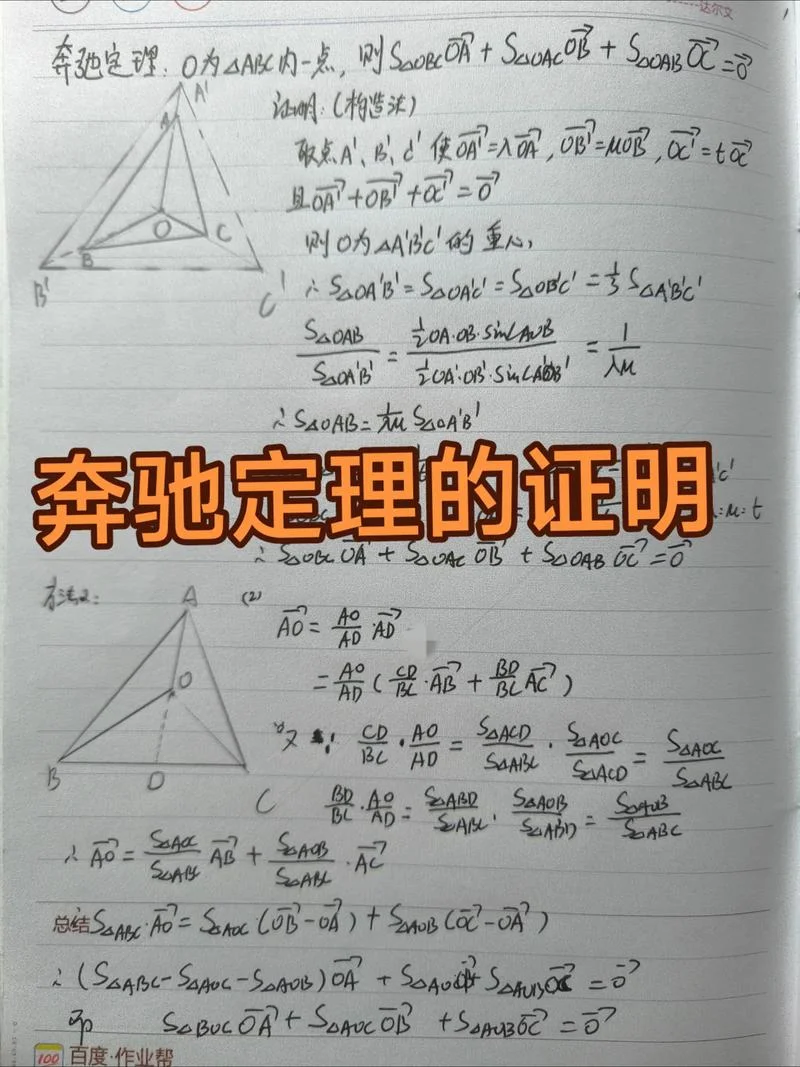 达尔文
奔驰定理: O为△ABC内一点, 则S△OBC OA→ + S△OAC OB→ + S△OAB OC→ = 0→
A'
A
O
B
C
B'
C'
证明:(构造法)
取点A'、B'、C' 使OA'→=λOA→, OB'→=μOB→, OC'→=tOC→
且OA'→+OB'→+OC'→=0→
则O为△A'B'C'的重心,
∴ S△OA'B' = S△OA'C' = S△OB'C' = 1/3 S△A'B'C'
S△OAB/S△OA'B' = (1/2 OA·OB·sin∠AOB)/(1/2 OA'·OB'·sin∠A'OB') = 1/λμ
∴ S△OAB = 1/λμ S△OA'B'
奔驰定理的证明
:μ:t
∴ S△OBC OA→ + S△OAC OB→ + S△OAB OC→ = 0→
方法2:
A
O
B
D
C
(2)
AO→ = AO/AD · AD→
= AO/AD ( CD/BC · AB→ + BD/BC AC→ )
又 ∵ CD/BC · AO/AD = S△ACD/S△ABC · S△AOC/S△ACD = S△AOC/S△ABC
BD/BC · AO/AD = S△ABD/S△ABC · S△AOB/S△ABD = S△AOB/S△ABC
∴ AO→ = S△AOC/S△ABC AB→ + S△AOB/S△ABC · AC→
总结 S△ABC · AO→ = S△AOC (OB→ - OA→) + S△AOB (OC→ - OA→)
∴ (S△ABC - S△AOC - S△AOB) OA→ + S△AOC OB→ + S△AOB OC→ = 0→
即 S△BOC OA→ + S△AOC OB→ + S△AOB OC→ = 0→
100 百度·作业帮